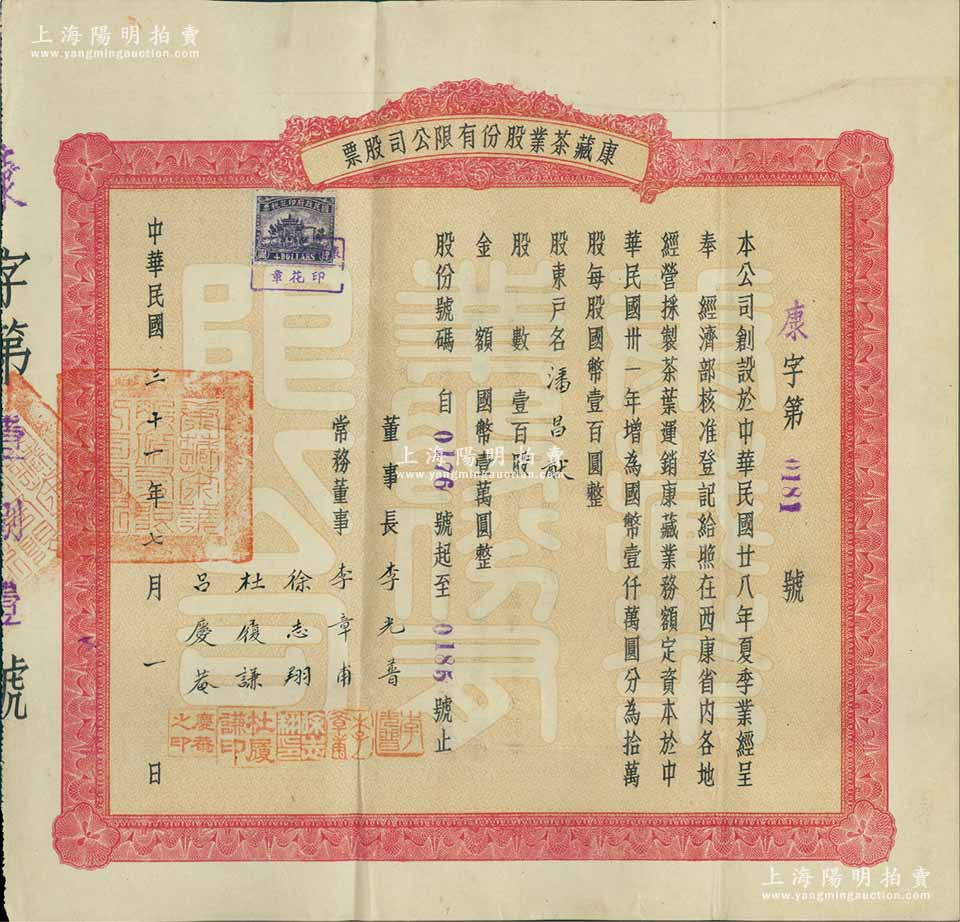 上海陽明拍賣
www.yangmingauction.com
康藏茶業股份有限公司股票
康字第0181號
本公司創設於中華民國廿八年夏季業經呈
奉 經濟部核准登記給照在西康省內各地
經營採製茶葉運銷康藏業務額定資本於中
華民國卅一年增為國幣壹仟萬圓分為拾萬
股每股國幣壹百圓整
股東戶名 潘昌猷
股 數 壹百股
金 額 國幣壹萬圓整
股份號碼 自 號起至 號止
董事長 李光普
常務董事 李章甫
徐志翔
杜履謙
呂慶菴
中華民國三十一年七月一日
國民政府印花稅票
4 DOLLARS
印花章
杜履謙印
慶菴之印
康字第壹捌壹號
上海陽明拍賣
www.yangmingauction.com
上海陽明拍賣
www.yangmingauction.com